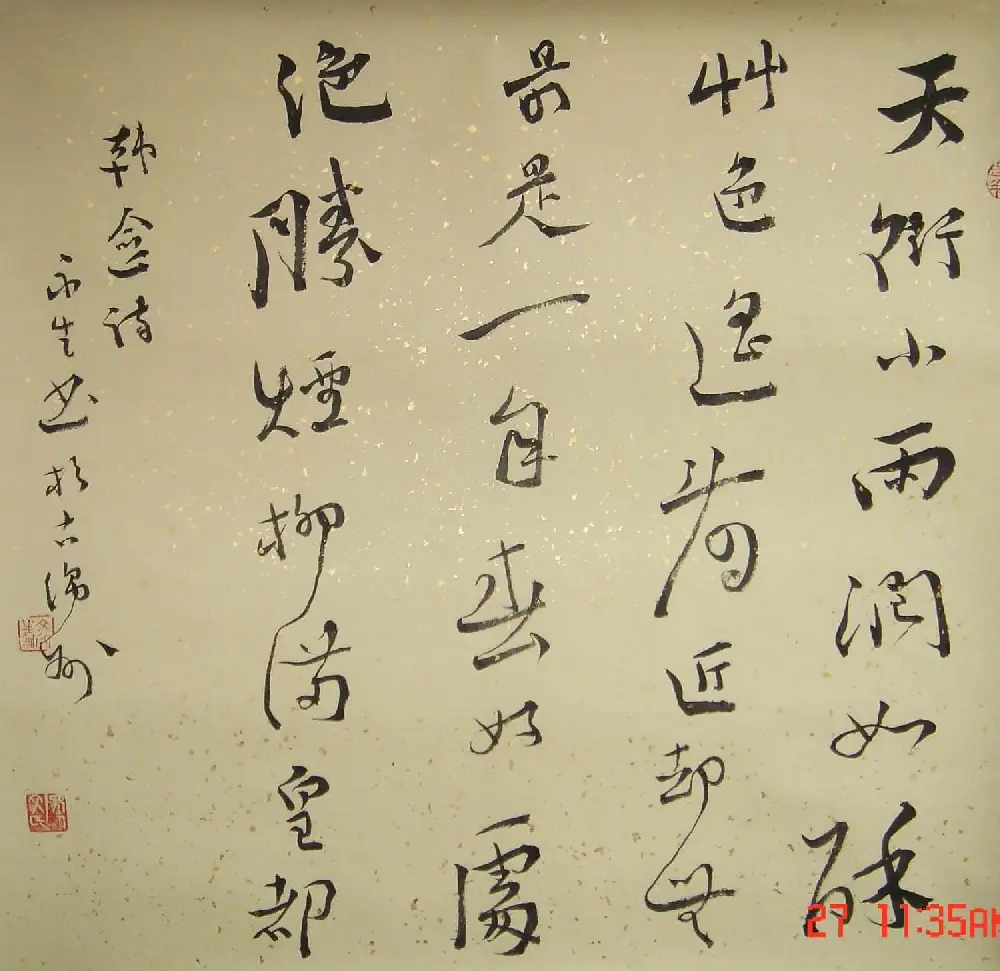 天街小雨潤如酥
艸色遙看近却無
最是一年春好處
絕勝煙柳滿皇都
韓愈詩
生书於古州
27 11:35AM